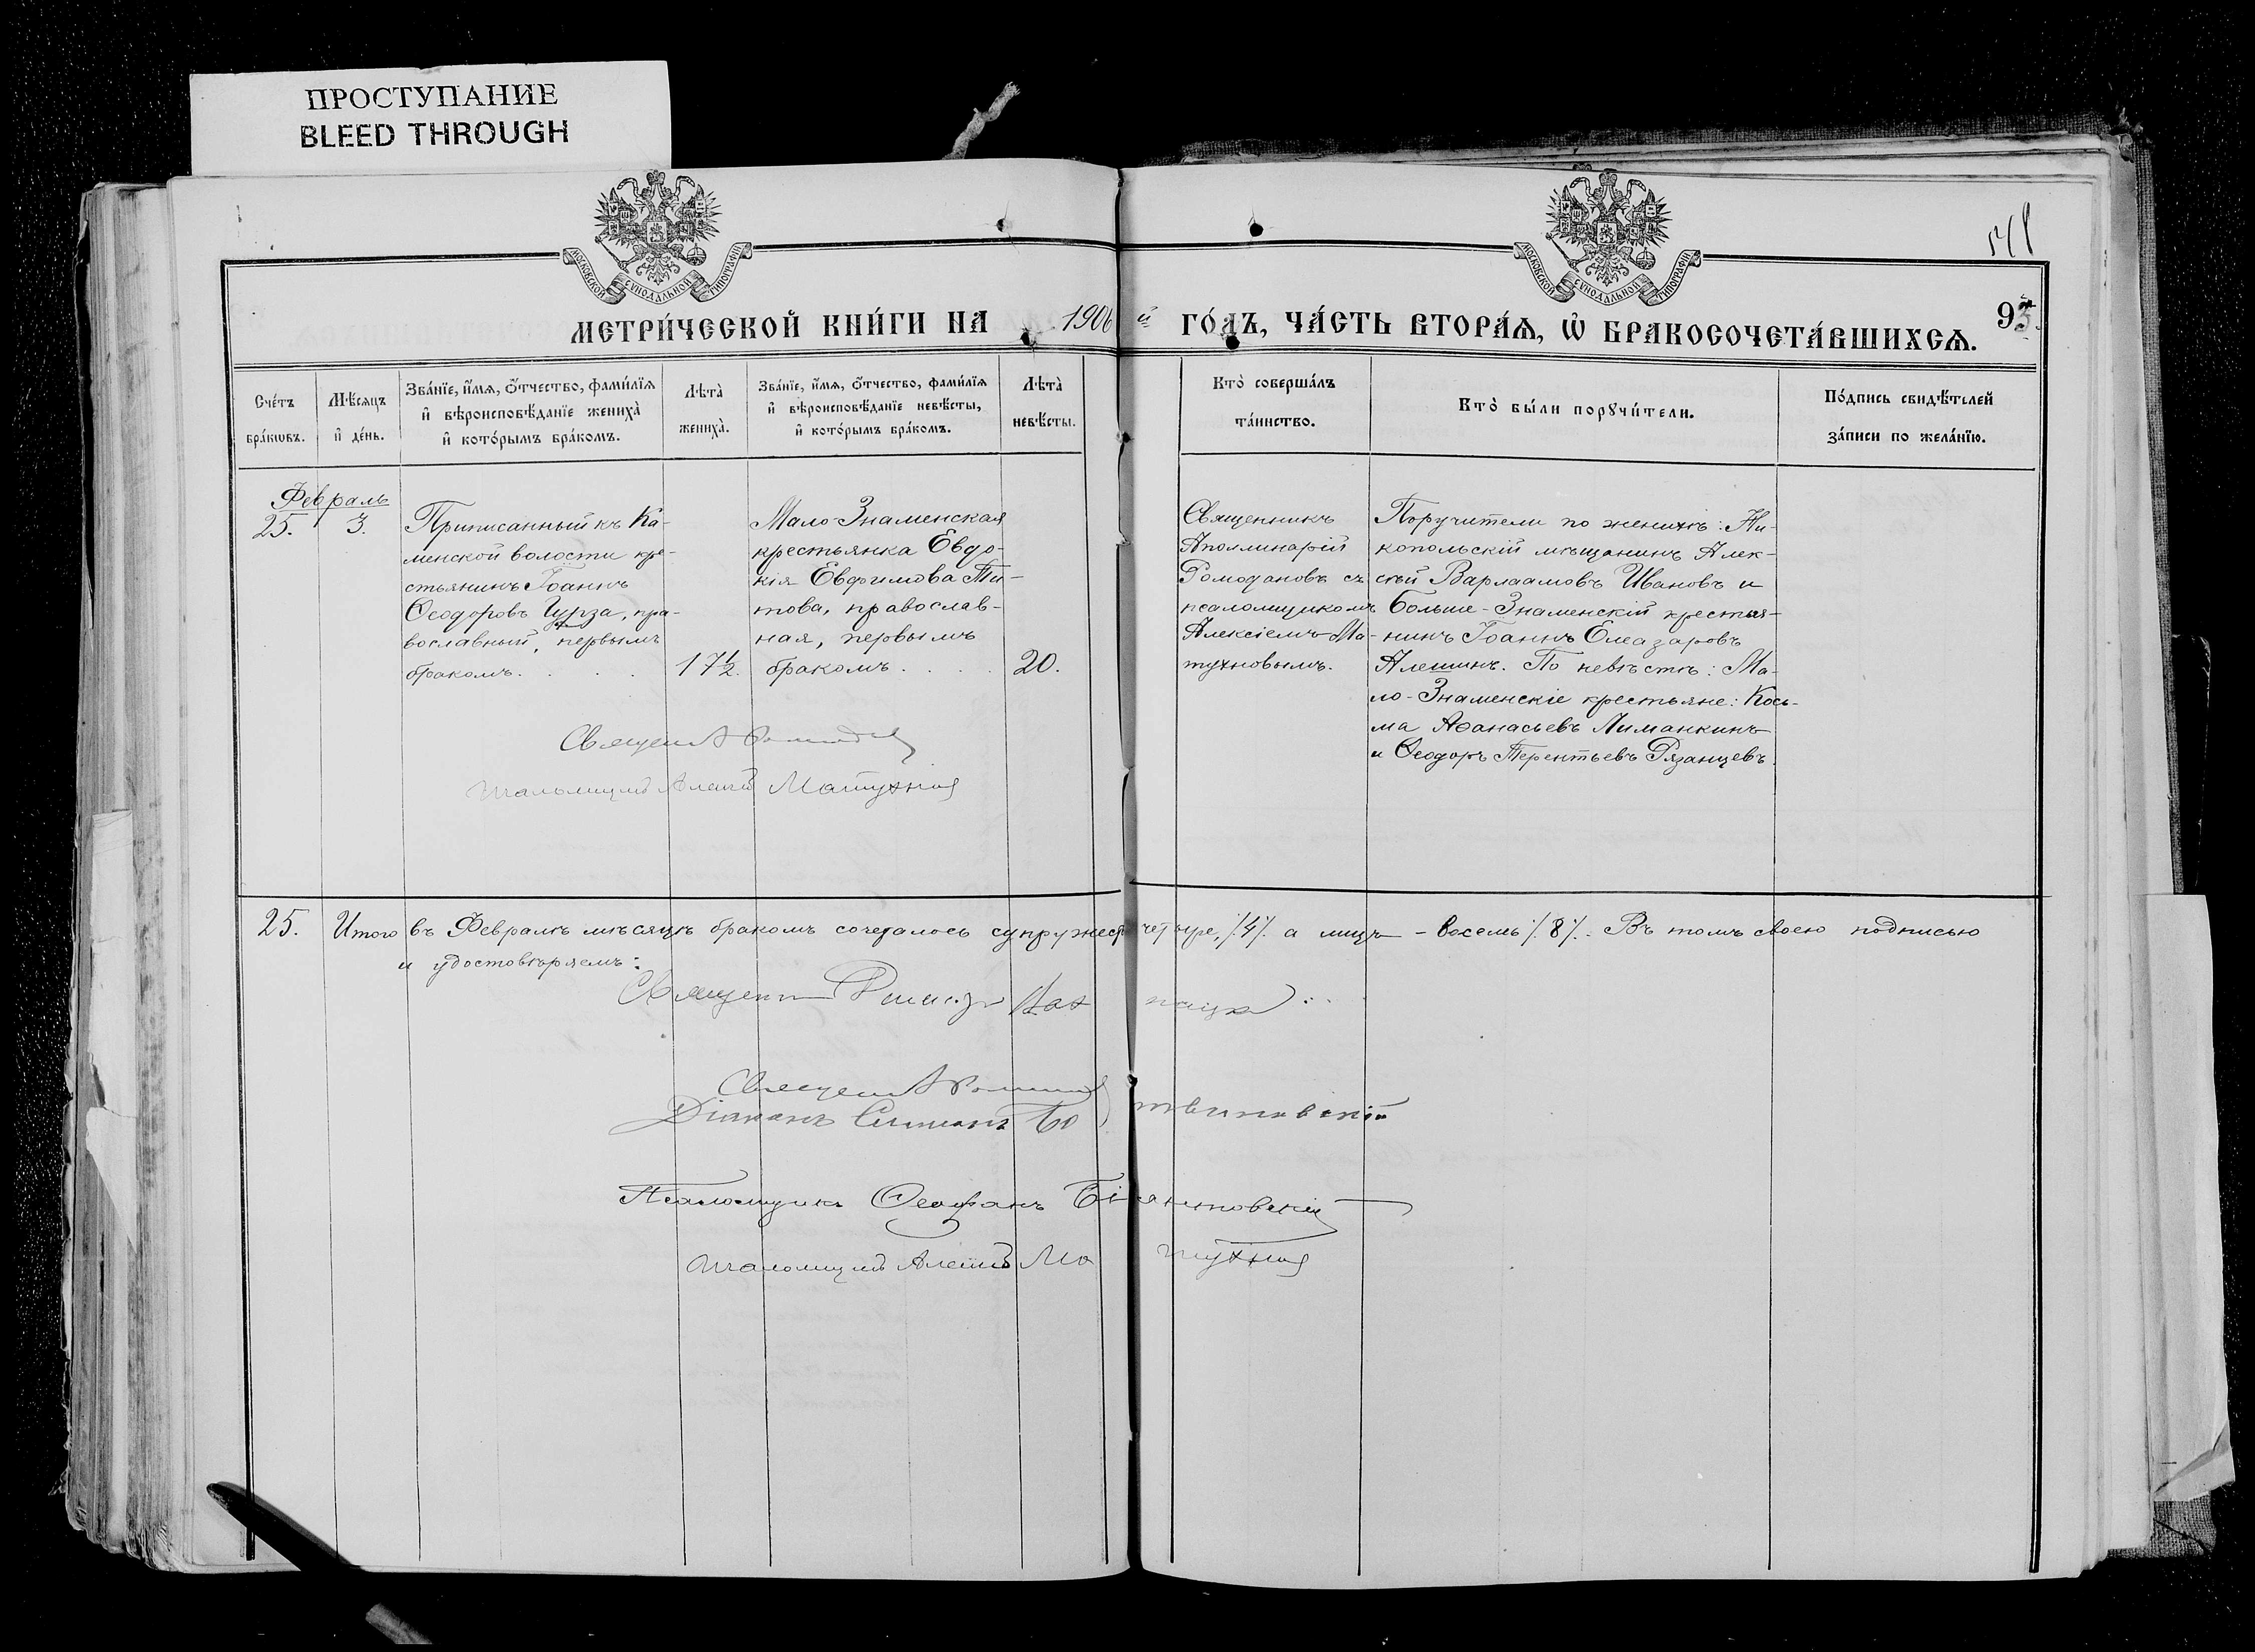 ПРОСТУПАНИЕ
BLEED THROUGH
МОСКОВСКОЙ СУНОДАЛЬНОЙ ТИПОГРАФІИ
МОСКОВСКОЙ СУНОДАЛЬНОЙ ТИПОГРАФІИ
МЕТРИ́ЧЕСКОЙ КНИ́ГИ НА 1906 й ГО́ДЪ, ЧА́СТЬ ВТОРА́Ѧ, Ѡ҆ БРАКОСОЧЕТА́ВШИХСѦ.
93
Сче́тъ
бра́кѡвъ.
Мѣ́сяцъ
и҆ де́нь.
Зва́нїе, и҆́мѧ, ѻ҆́тчество, фами́лїѧ
и҆ вѣроисповѣ́данїе жениха̀
и҆ кото́рымъ бра́комъ.
Лѣта̀
жениха̀.
Зва́нїе, и҆́мѧ, ѻ҆́тчество, фами́лїѧ
и҆ вѣроисповѣ́данїе невѣ́сты,
и҆ кото́рымъ бра́комъ.
Лѣта̀
невѣ́сты.
Кто̀ соверша́лъ
та́инство.
Кто̀ бы́ли порꙋчи́тели.
По́дпись свидѣ́телей
за́писи по жела́нїю.
Февраль
25.
3.
Приписанный къ Ка-
менской волости кре-
стьянинъ Іоаннъ
Ѳеодоровъ Цурза, пра-
вославный, первымъ
бракомъ. . . . .
17½.
Мало-Знаменская
крестьянка Евдо-
кія Евфимова Ти-
това, православ-
ная, первымъ
бракомъ . . . .
20.
Священникъ
Аполлинарій
Ромодановъ съ
псаломщикомъ
Алексіемъ Ма-
тухновымъ.
Поручители по женихѣ: Ни-
копольскій мѣщанинъ Алек-
сѣй Варлаамовъ Ивановъ и
Больше-Знаменскій крестья-
нинъ Іоаннъ Елеазаровъ
Алешинъ. По невѣстѣ: Ма-
ло-Знаменскіе крестьяне: Кось-
ма Аѳанасьевъ Лиманкинъ
и Ѳеодоръ Терентьевъ Рязанцевъ.
Псаломщикъ Алексій Матухновъ
25. Итого въ Февралѣ мѣсяцѣ бракомъ сочеталось супружествъ четыре, /4/. а лицъ - восемь /8/. Въ томъ своею подписью
и удостовѣряемъ:
Діаконъ
Псаломщикъ Ѳеофанъ
Псаломщикъ Алексій Матухновъ